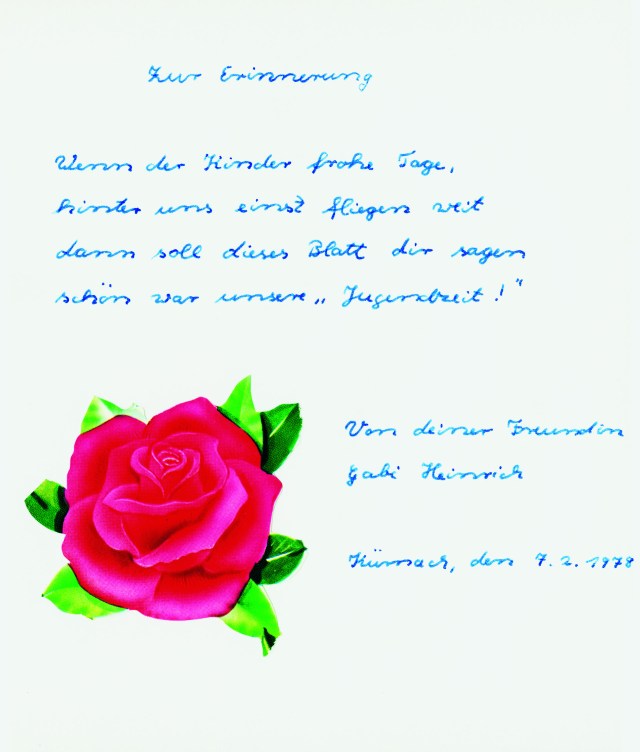 Zur Erinnerung
Wenn der Kinder frohe Tage,
hinter uns einst fliegen weit
dann soll dieses Blatt dir sagen
schön war unsere „ Jugendzeit!"
Von deiner Freundin
Gabi Heinrich
Kürnach, den 7.2.1978